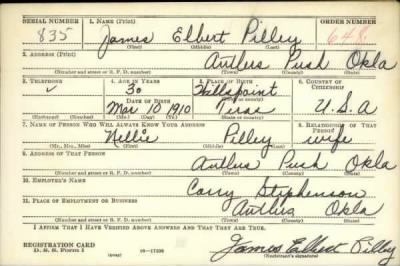 SERIAL NUMBER 1. NAME (Print) ORDER NUMBER
835 James Elbert Pilley 648
(First) (Middle) (Last)
2. ADDRESS (Print)
Antlers Push Okla
(Number and street or R. F. D. number) (Town) (County) (State)
3. TELEPHONE 4. AGE IN YEARS 5. PLACE OF BIRTH 6. COUNTRY OF CITIZENSHIP
30 Willspoint
(Town or county)
DATE OF BIRTH
Mar 10 1910 Texas U.S.A
(Mo.) (Day) (Yr.) (State or country)
7. NAME OF PERSON WHO WILL ALWAYS KNOW YOUR ADDRESS 8. RELATIONSHIP OF THAT PERSON
Nellie Pilley wife
(Mr., Mrs., Miss) (First) (Middle) (Last)
9. ADDRESS OF THAT PERSON
Antlers Push Okla
(Number and street or R. F. D. number) (Town) (County) (State)
10. EMPLOYER'S NAME
Corry Stephenson
11. PLACE OF EMPLOYMENT OR BUSINESS
Antlers Okla
(Number and street or R. F. D. number) (Town) (County) (State)
I AFFIRM THAT I HAVE VERIFIED ABOVE ANSWERS AND THAT THEY ARE TRUE.
REGISTRATION CARD
D. S. S. Form 1 (over) James Elbert Pilley
(Registrant's signature)